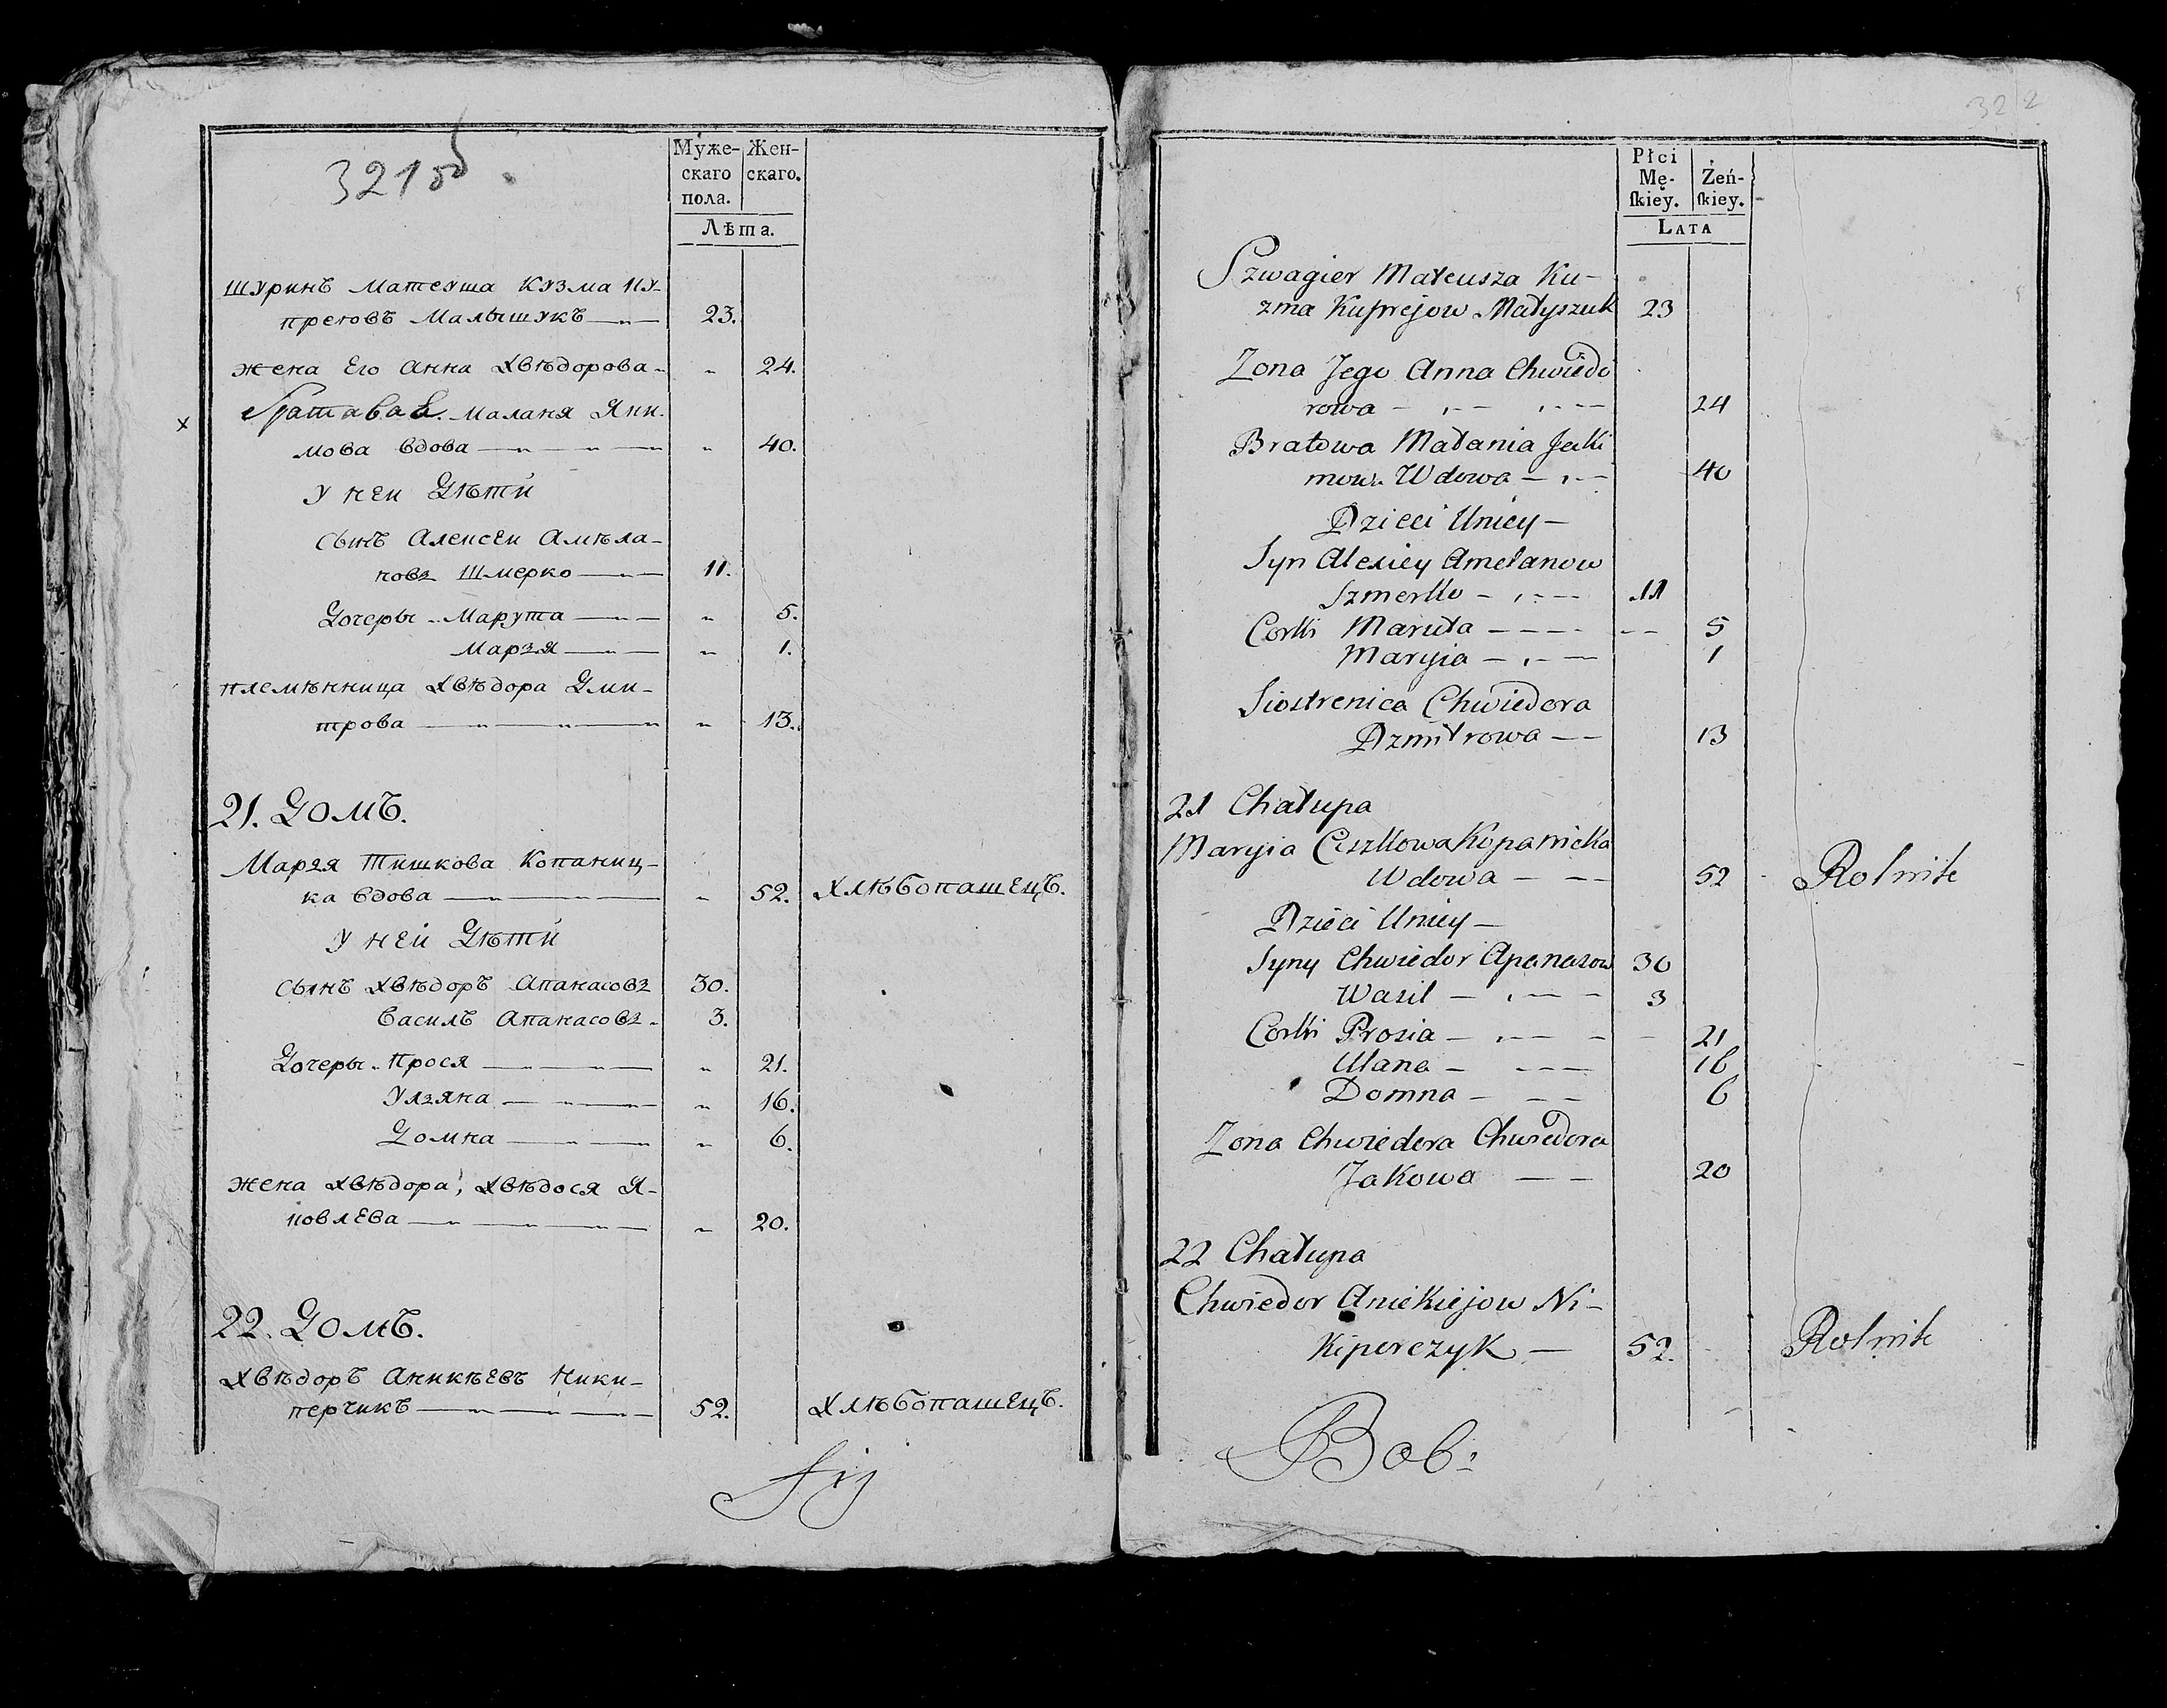 321 об.
Муже-
скаго
пола.
Жен-
скаго.
Лѣта.
шуринъ Матеуша Кузма Ку-
преговъ Малышукъ 23.
жена Его Анна Хвѣдорова 24.
Братавая Маланя Яки-
мова вдова 40.
у неи Дѣти
сынъ Алексеи Амѣла-
новъ Шмерко 11.
Дочеры Марута 5.
Марья 1.
племѣнница Хвѣдора Дми-
трова 13.
21. Домъ.
Марья Тишкова Копаниц-
ка вдова 52. Хлѣбопашецъ.
у ней Дѣти
сынъ Хвѣдоръ Апанасовъ 30.
Василь Апанасовъ 3.
Дочеры Прося 21.
Ульяна 16.
Домна 6.
жена Хвѣдора, Хвѣдося Я-
ковлева 20.
22. Домъ.
Хвѣдоръ Аникѣевъ Ники-
перчикъ 52. Хлѣбопашецъ.
322
Płci
Mę-
ſkiey.
Żeń-
ſkiey.
LATA
Szwagier Mateusza Ku-
zma Kuprejow Małyszuk 23
Zona Jego Anna Chwiedo
rowa 24
Bratowa Małania Jaki
mow. Wdowa 40
Dzieci Uniey
Syn Alexiey Amełanow
Szmerko 11
Corki Maruta 5
Maryia 1
Siostrenica Chwiedora
Dzmitrowa 13
21 Chałupa
Maryia Ciszkowa Kopanicka
Wdowa 52 Rolnik
Dzieci Uniey
Syny Chwiedor Apanasow 30
Wasil 3
Corki Prosia 21
Ulana 16
Domna 6
Zona Chwiedora Chwiedora
Jakowa 20
22 Chałupa
Chwiedor Aniekiejow Ni-
kiperczyk 52. Rolnik
Bob: